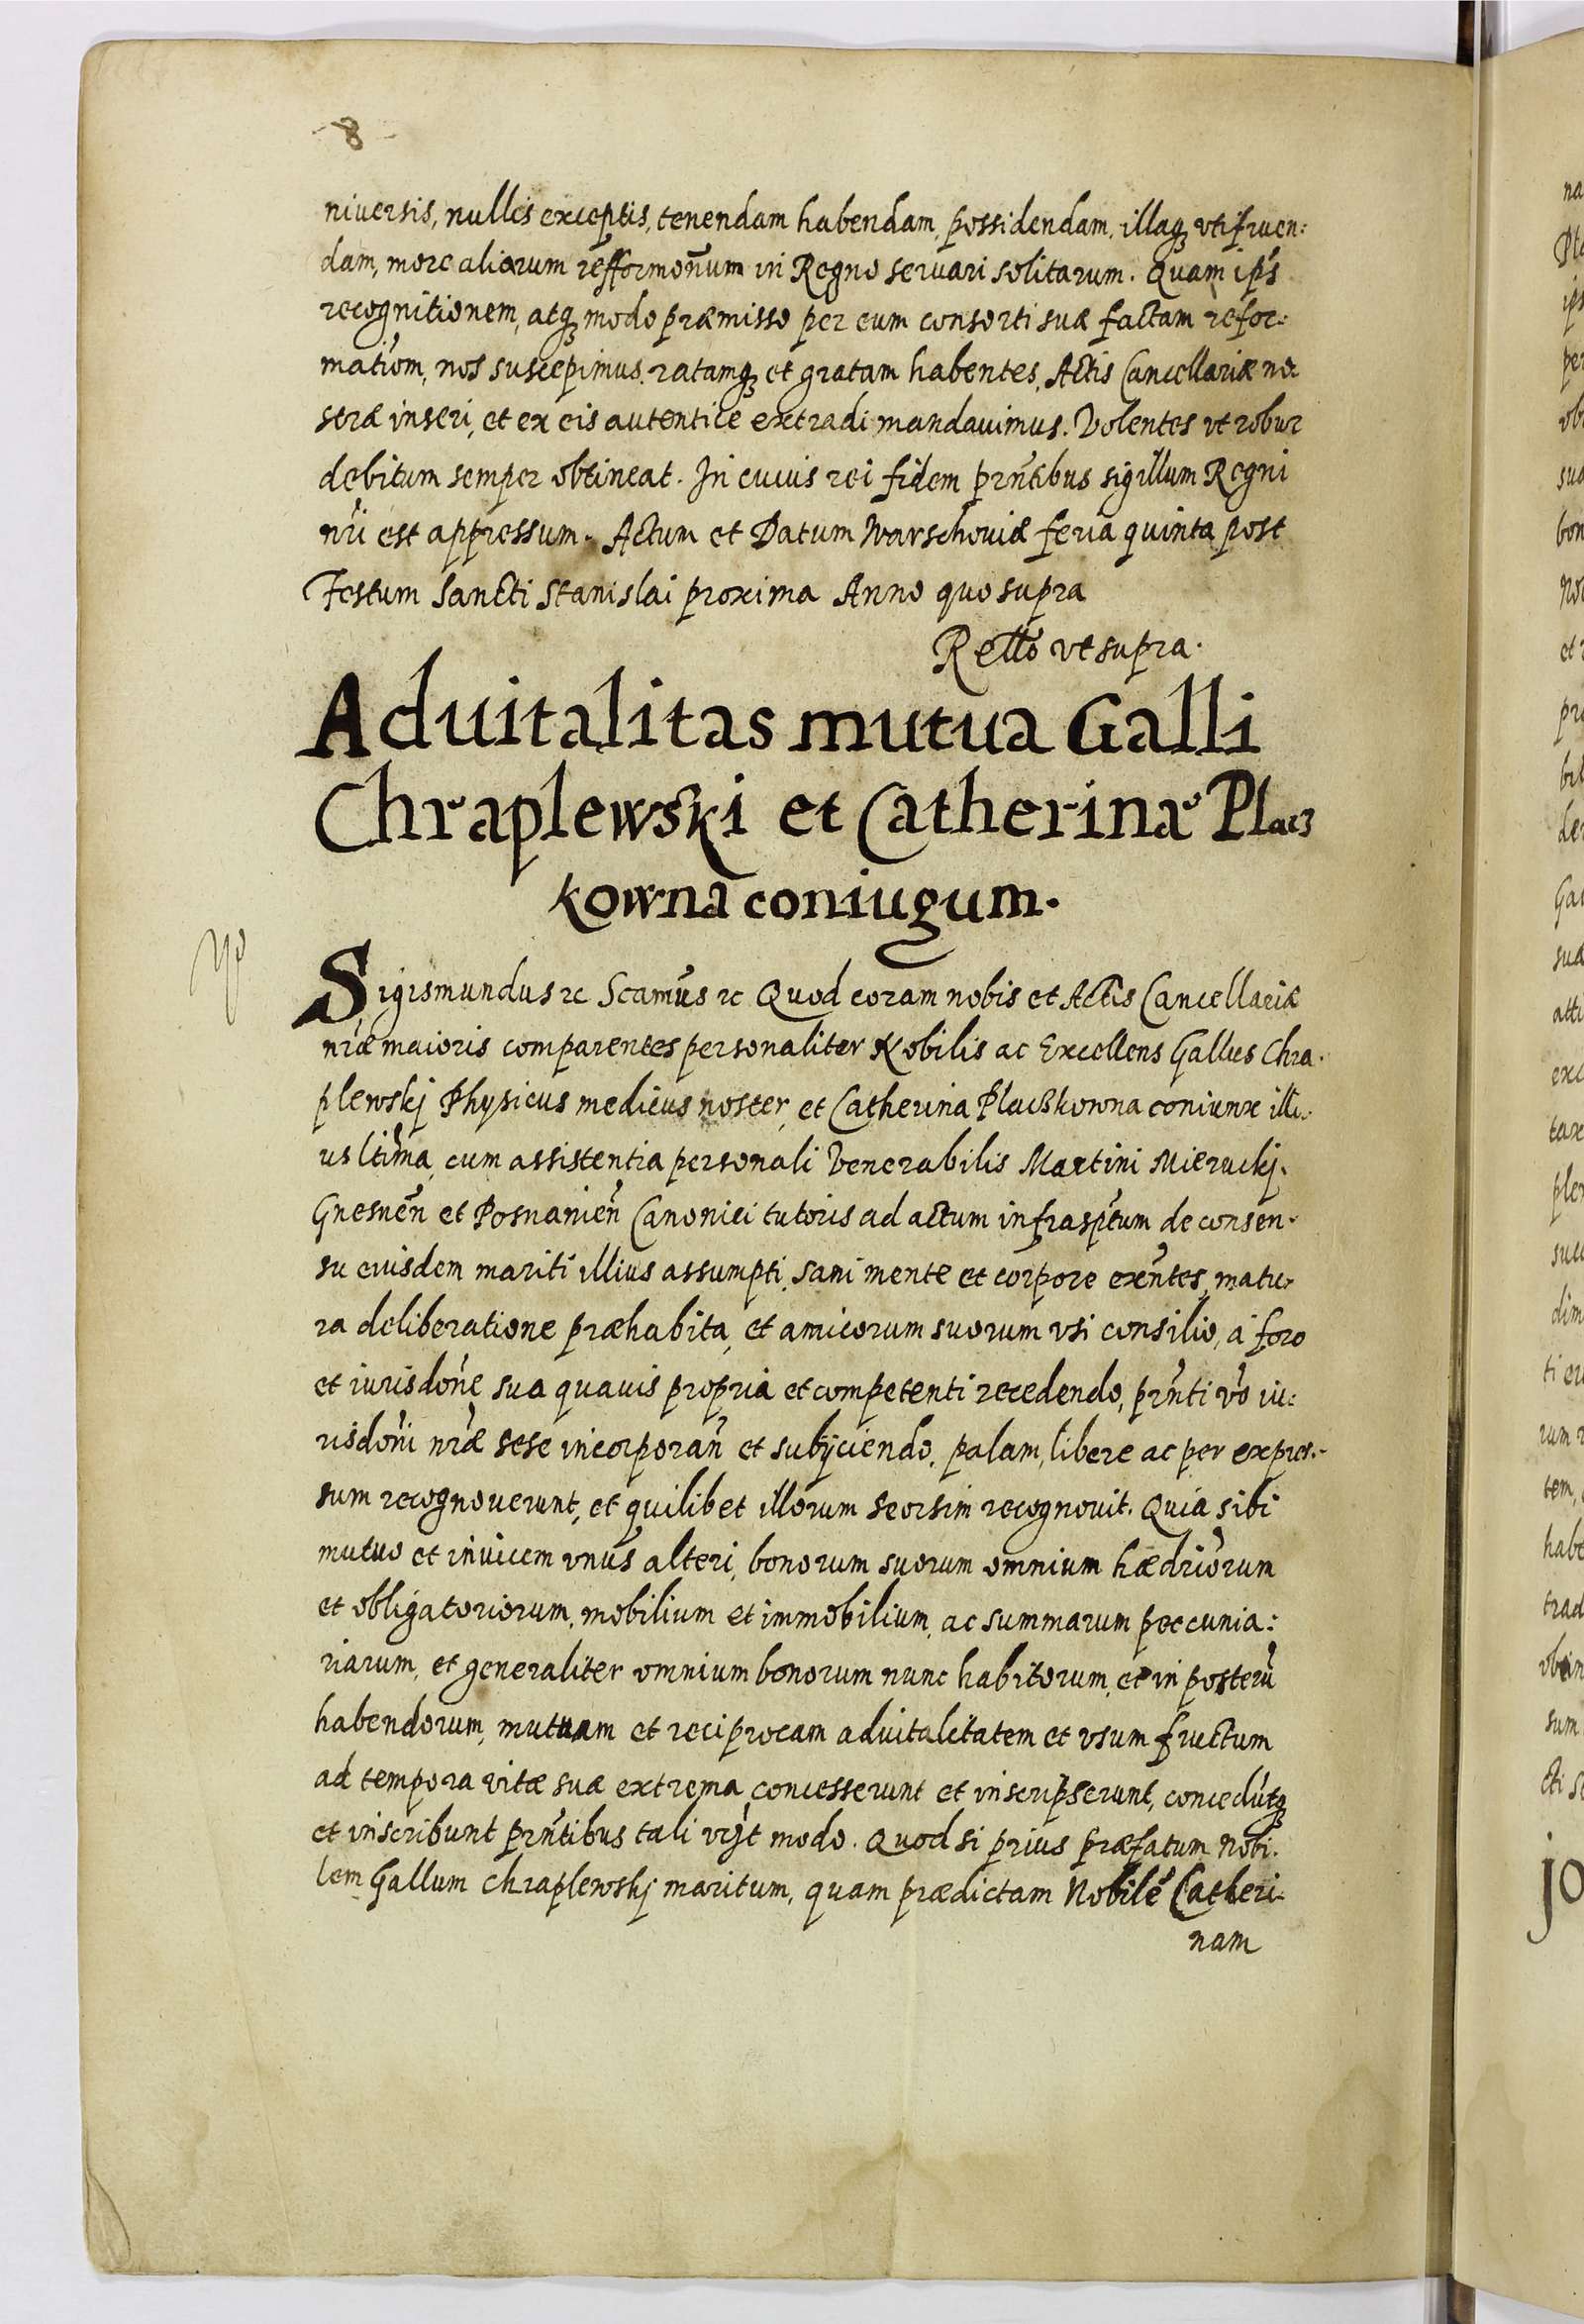 - 8 -
niuersis, nullis exceptis, tenendam habendam, possidendam, illaqꝫ vtifruen:
dam, more aliorum refformon̄um in Regno seruari solitarum. Quam ips
recognitionem, atqꝫ modo præmisso per eum consorti suæ factam refor:
matiom, nos suscepimus, ratamqꝫ et gratam habentes, Actis Cancellariæ no
stræ inseri, et ex eis autentice extradi mandauimus. Volentes vt robur
debitum semper obtineat. In cuius rei fidem prn̄tibus sigillum Regni
nri est appressum. Actum et Datum Warschouiæ feria quinta post
Festum Sancti Stanislai proxima Anno quo supra
Retto vt supra.
Aduitalitas mutua Galli
Chraplewski et Catherinæ Placz
kowna coniugum.
Sigismundus ꝛc Scamus ꝛc Quod coram nobis et Actis Cancellariæ
nræ maioris comparentes personaliter Nobilis ac Excellens Gallus Chra-
plewskj Physicus medicus noster, et Catherina Placzkowna coniunx illi-
us ltima, cum assistentia personali Venerabilis Martini Mieruckj.
Gnesnen̄ et Posnanien̄ Canonici tutoris ad actum infrasptum de consen-
su eiusdem mariti illius assumpti, sani mente et corpore exn̄tes, matu-
ra deliberatione præhabita, et amicorum suorum vsi consilio, a foro
et iurisdone sua quauis propria et competenti recedendo, prn̄ti vo iu:
risdoni nræ sese incorporan̄ et subijciendo, palam, libere ac per expres-
sum recognouerunt, et quilibet illorum seorsim recognouit. Quia sibi
mutuo et inuicem vnus alteri, bonorum suorum omnium hædriorum
et obligatoriorum, mobilium et immobilium, ac summarum peccunia:
riarum, et generaliter omnium bonorum nunc habitorum, et in posterū
habendorum, mutuam et reciprocam aduitalitatem et vsum fructum
ad tempora vitæ suæ extrema concesserunt et inscripserunt, concedūtqꝫ
et inscribunt prn̄tibus tali vizt modo. Quod si prius præfatum Nobi-
lem Gallum Chraplewskj maritum, quam prædictam Nobilē Catheri-
nam